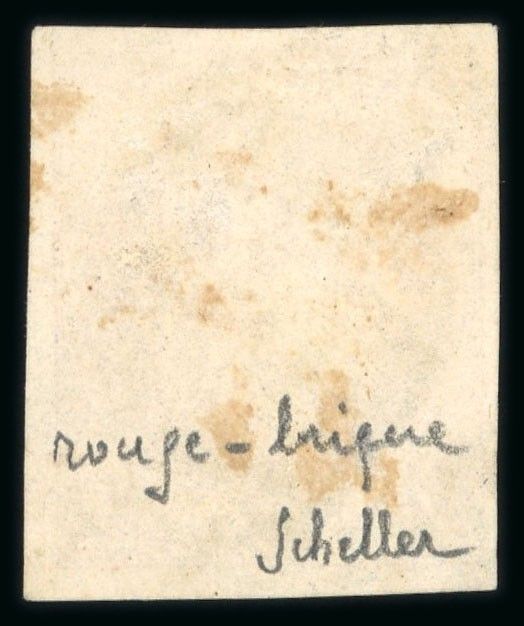 rouge-brique
Scheller